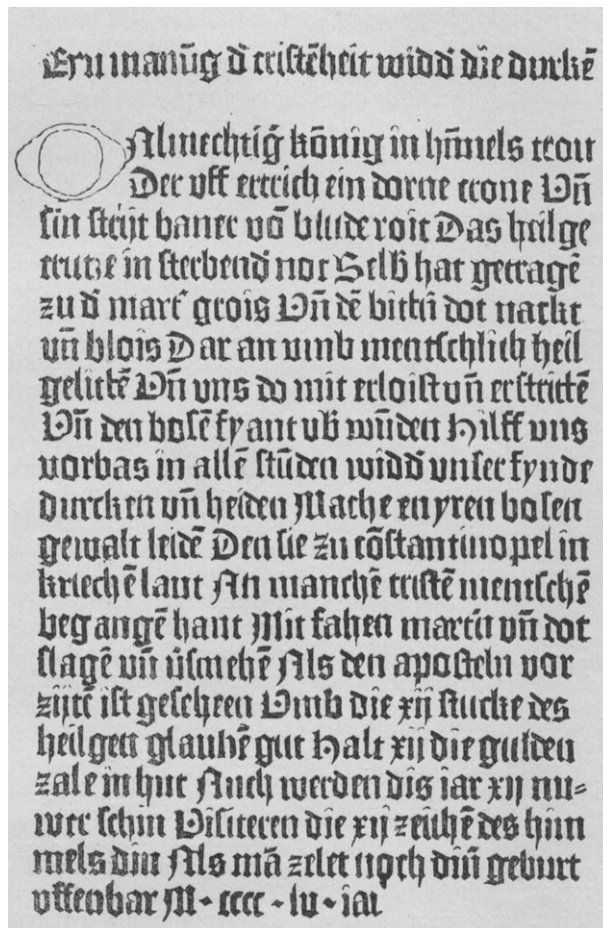 Eyn manūg d̄ cristēheit widd̄ die durkē
Almechtiḡ kōnig in hīmels tron
Der uff ertrich ein dorne crone Vn̄
sin strijt baner vō blude roit Das heilge
crutze in sterbend̄ not Selb̄ hat getragē
zu d̄ mart̄ grois Vn̄ dē bittn̄ dot nackt
vn̄ blois Dar an vmb mentschlich heil
gelittē Vn̄ vns do mit erloist vn̄ erstrittē
Vn̄ den bosē fyant vb̄ wūden Hilff vns
vorbas in allē stūden widd̄ vnser fynde
durcken vn̄ heiden Mache en yren bosen
gewalt leidē Den sie zu cōstantinopel in
kriechē lant An manchē cristē mentschē
begangē hant Mit fahen martīn vn̄ dot
slagē vn̄ v̄smehē Als den aposteln vor
zijtē ist gescheen Vmb die xij stucke des
heilgen glaubē gut Halt xij die gulden
zale in hut Auch werden dis iar xij nu=
wer schin Visiteren die xij zeichē des him
mels din Als mā zelet noch din̄ geburt
offenbar M • cccc • lv • iar